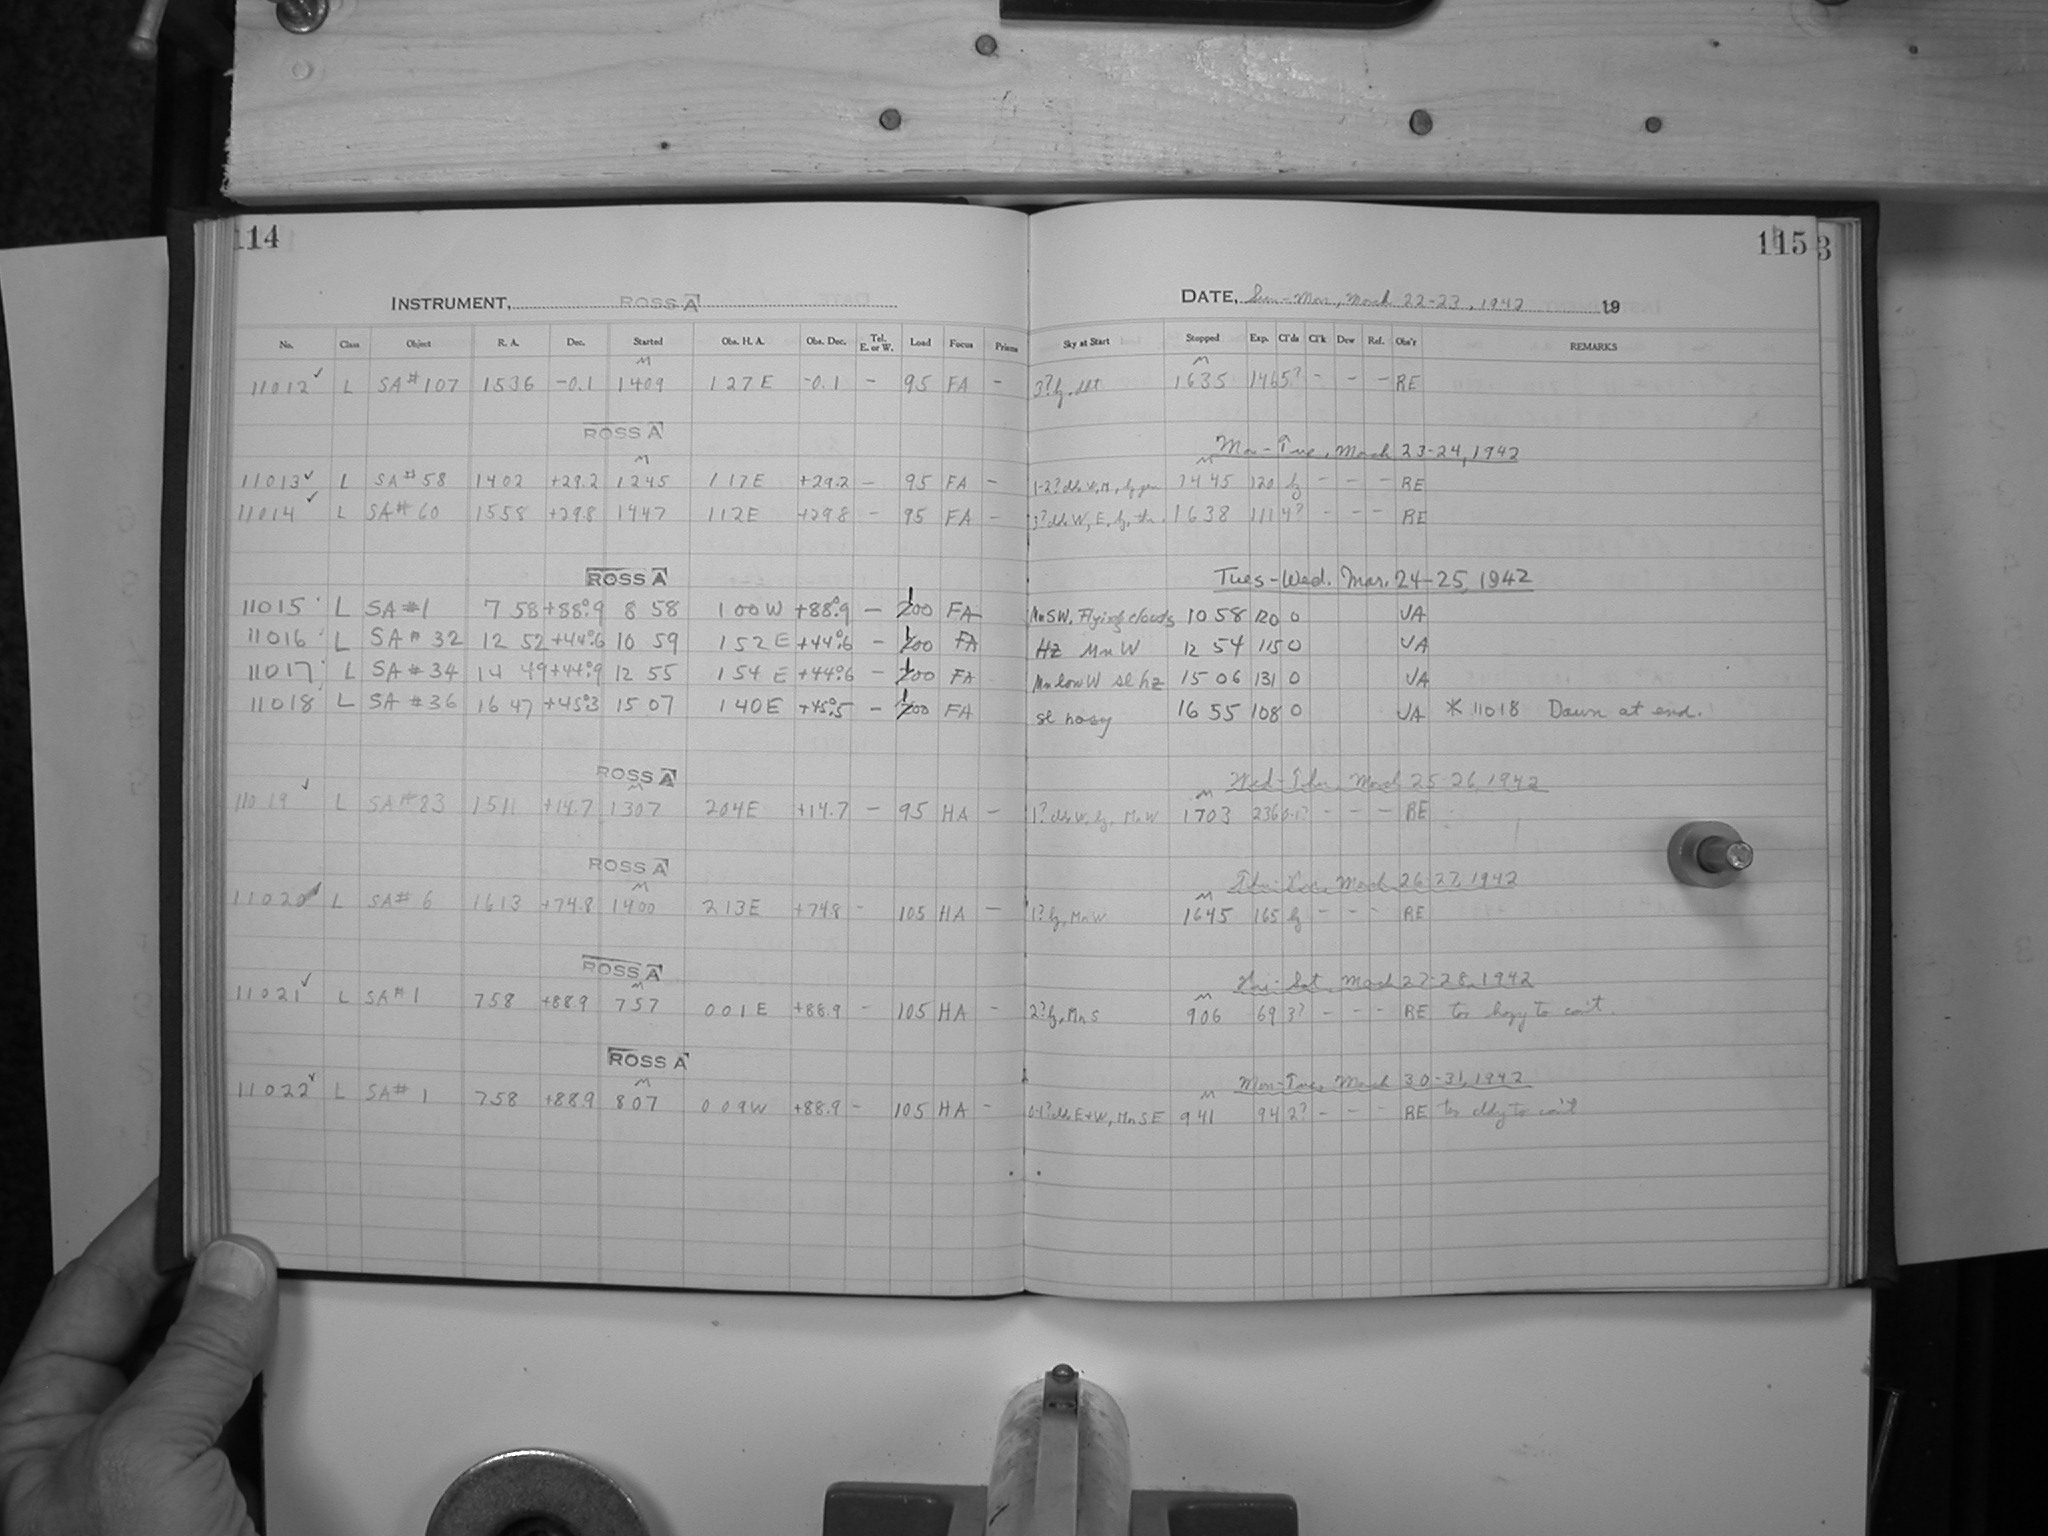 114
115
INSTRUMENT, ROSS A
DATE, Sun-Mon, March 22-23, 1942 19
No. Class Object R. A. Dec. Started Obs. H. A. Obs. Dec. Tel. E. or W. Load Focus Prisms Sky at Start Stopped Exp. Cl'ds Cl'k Dew Ref. Obs'r REMARKS
M M
11012 ✓ L SA#107 1536 -0.1 1409 127E -0.1 - 95 FA - 1635 146 5? - - - RE
ROSS A Mon-Tue, March 23-24, 1942
M M
11013 ✓ L SA#58 1402 +29.2 1245 117E +29.2 - 95 FA - 1445 120 hz - - - RE
11014 ✓ L SA#60 1558 +29.8 1447 112E +29.8 - 95 FA - 1638 111 4? - - - RE
ROSS A Tues-Wed. Mar. 24-25, 1942
11015 L SA #1 7 58 +88°.9 8 58 1 00 W +88°.9 - 100 FA Mn SW. Flying clouds 10 58 120 0 JA
11016 L SA # 32 12 52 +44°.6 10 59 1 52 E +44°.6 - 100 FA HZ Mn W 12 54 115 0 JA
11017 L SA # 34 14 49 +44°.9 12 55 1 54 E +44°.6 - 100 FA Mn low W sl hz 15 06 131 0 JA
11018 L SA #36 16 47 +45°.3 15 07 1 40 E +45°.5 - 100 FA sl hazy 16 55 108 0 JA * 11018 Dawn at end.
ROSS A Wed-Thu, March 25-26, 1942
M M
11019 ✓ L SA#83 1511 +14.7 1307 204E +14.7 - 95 HA - 1703 236 0-1? - - - RE
ROSS A March 26-27, 1942
M M
11020 ✓ L SA# 6 1613 +74.8 1400 213E +74.8 - 105 HA - 1? hz, Mn W 1645 165 hz - - - RE
ROSS A Fri-Sat, March 27-28, 1942
M M
11021 ✓ L SA#1 758 +88.9 757 001E +88.9 - 105 HA - 2? hz, Mn S 906 69 3? - - - RE too hazy to con't.
ROSS A Mon-Tue, March 30-31, 1942
M M
11022 ✓ L SA# 1 758 +88.9 807 009W +88.9 - 105 HA - 941 94 2? - - - RE too cldy to con't